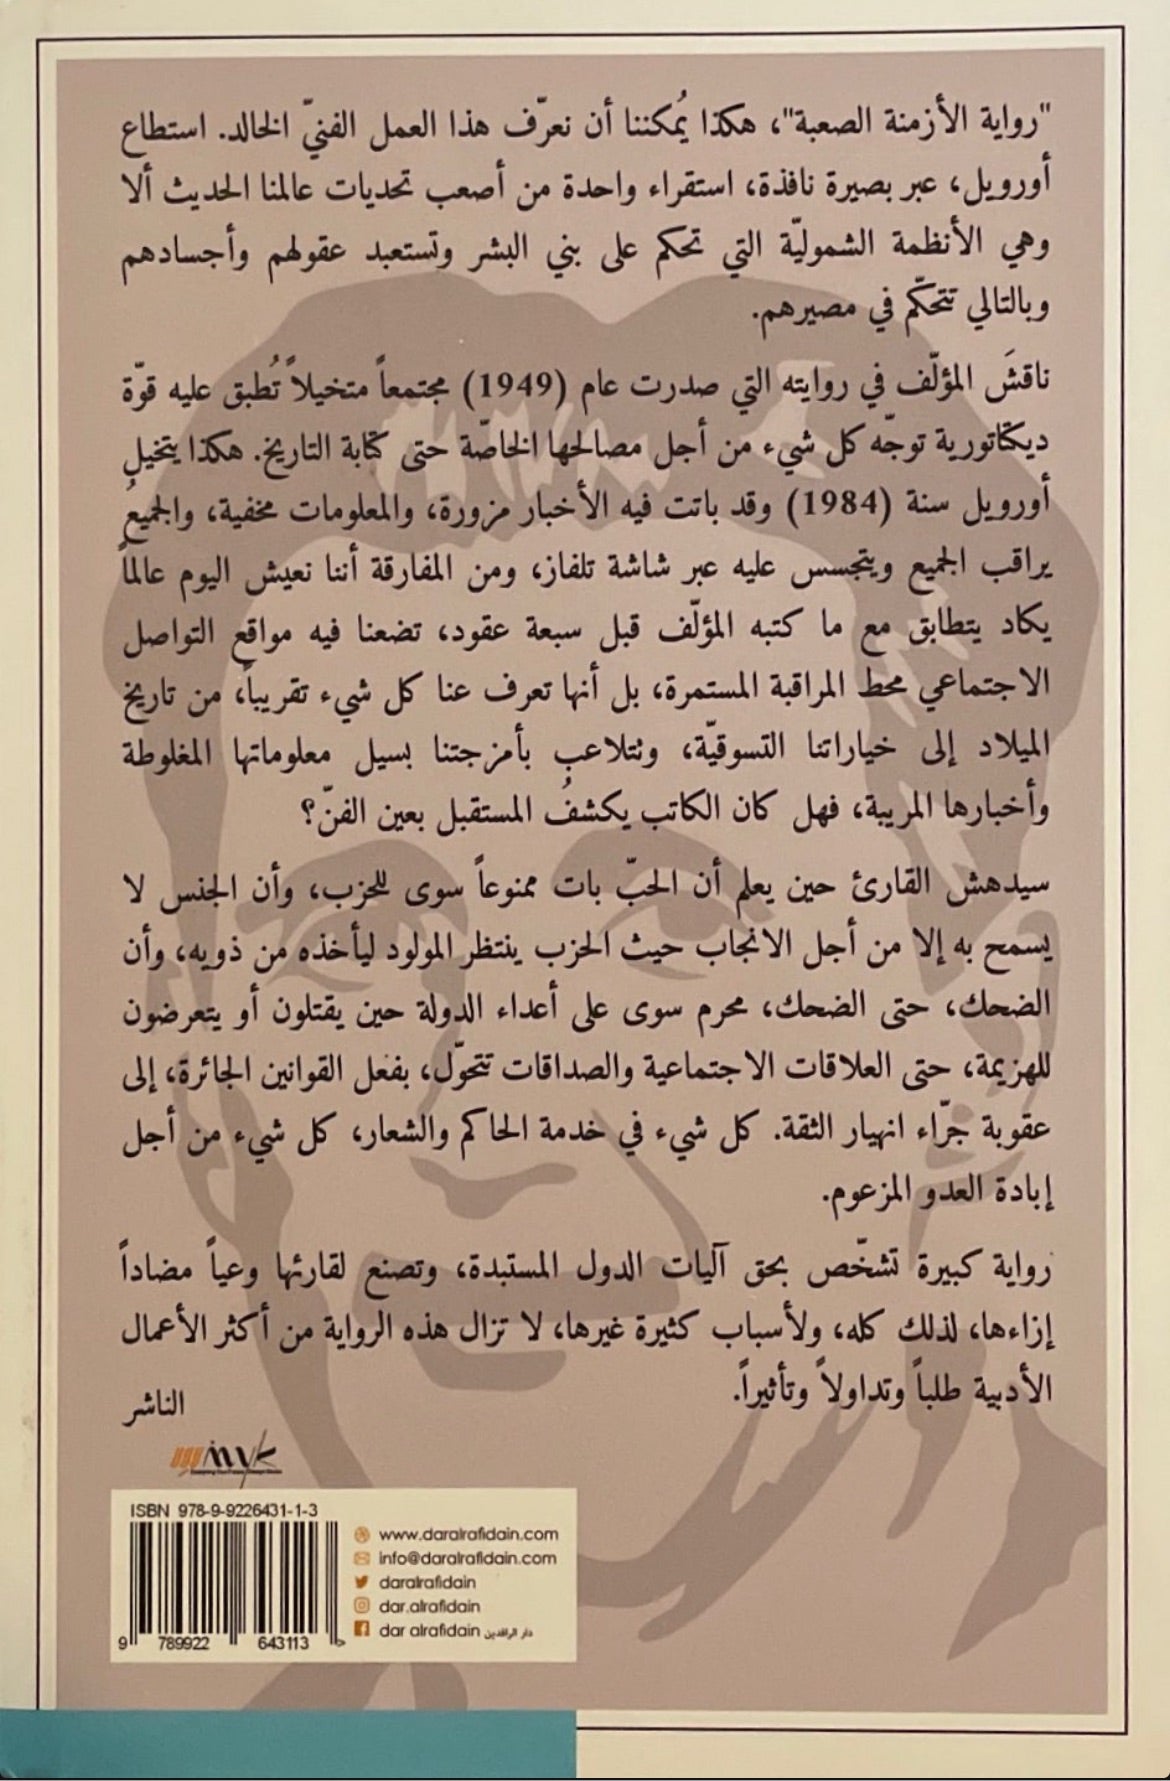 "رواية الأزمنة الصعبة"، هكذا يُمكننا أن نعرّف هذا العمل الفنيّ الخالد. استطاع
أورويل، عبر بصيرة نافذة، استقراء واحدة من أصعب تحديات عالمنا الحديث ألا
وهي الأنظمة الشموليّة التي تحكم على بني البشر وتستعبد عقولهم وأجسادهم
وبالتالي تتحكّم في مصيرهم.
ناقشَ المؤلّف في روايته التي صدرت عام (1949) مجتمعاً متخيلاً تُطبق عليه قوّة
ديكتاتورية توجّه كل شيء من أجل مصالحها الخاصّة حتى كتابة التاريخ. هكذا يتخيل
أورويل سنة (1984) وقد باتت فيه الأخبار مزورة، والمعلومات مخفية، والجميعُ
يراقب الجميع ويتجسس عليه عبر شاشة تلفاز، ومن المفارقة أننا نعيش اليوم عالماً
يكاد يتطابق مع ما كتبه المؤلّف قبل سبعة عقود، تضعنا فيه مواقع التواصل
الاجتماعي محط المراقبة المستمرة، بل أنها تعرف عنا كل شيء تقريباً، من تاريخ
الميلاد إلى خياراتنا التسوقيّة، وتتلاعب بأمزجتنا بسيل معلوماتها المغلوطة
وأخبارها المريبة، فهل كان الكاتب يكشفُ المستقبل بعين الفنّ؟
سيدهش القارئ حين يعلم أن الحبّ بات ممنوعاً سوى للحزب، وأن الجنس لا
يسمح به إلا من أجل الانجاب حيث الحزب ينتظر المولود ليأخذه من ذويه، وأن
الضحك، حتى الضحك، محرم سوى على أعداء الدولة حين يقتلون أو يتعرضون
للهزيمة، حتى العلاقات الاجتماعية والصداقات تتحوّل، بفعل القوانين الجائرة، إلى
عقوبة جرّاء انهيار الثقة. كل شيء في خدمة الحاكم والشعار، كل شيء من أجل
إبادة العدو المزعوم.
رواية كبيرة تشخّص بحق آليات الدول المستبدة، وتصنع لقارئها وعياً مضاداً
إزاءها، لذلك كله، ولأسباب كثيرة غيرها، لا تزال هذه الرواية من أكثر الأعمال
الأدبية طلباً وتداولاً وتأثيراً.
الناشر
ISBN 978-9-9226431-1-3
9 789922 643113 >
www.daralrafidain.com
info@daralrafidain.com
daralrafidain
dar.alrafidain
dar alrafidain دار الرافدين